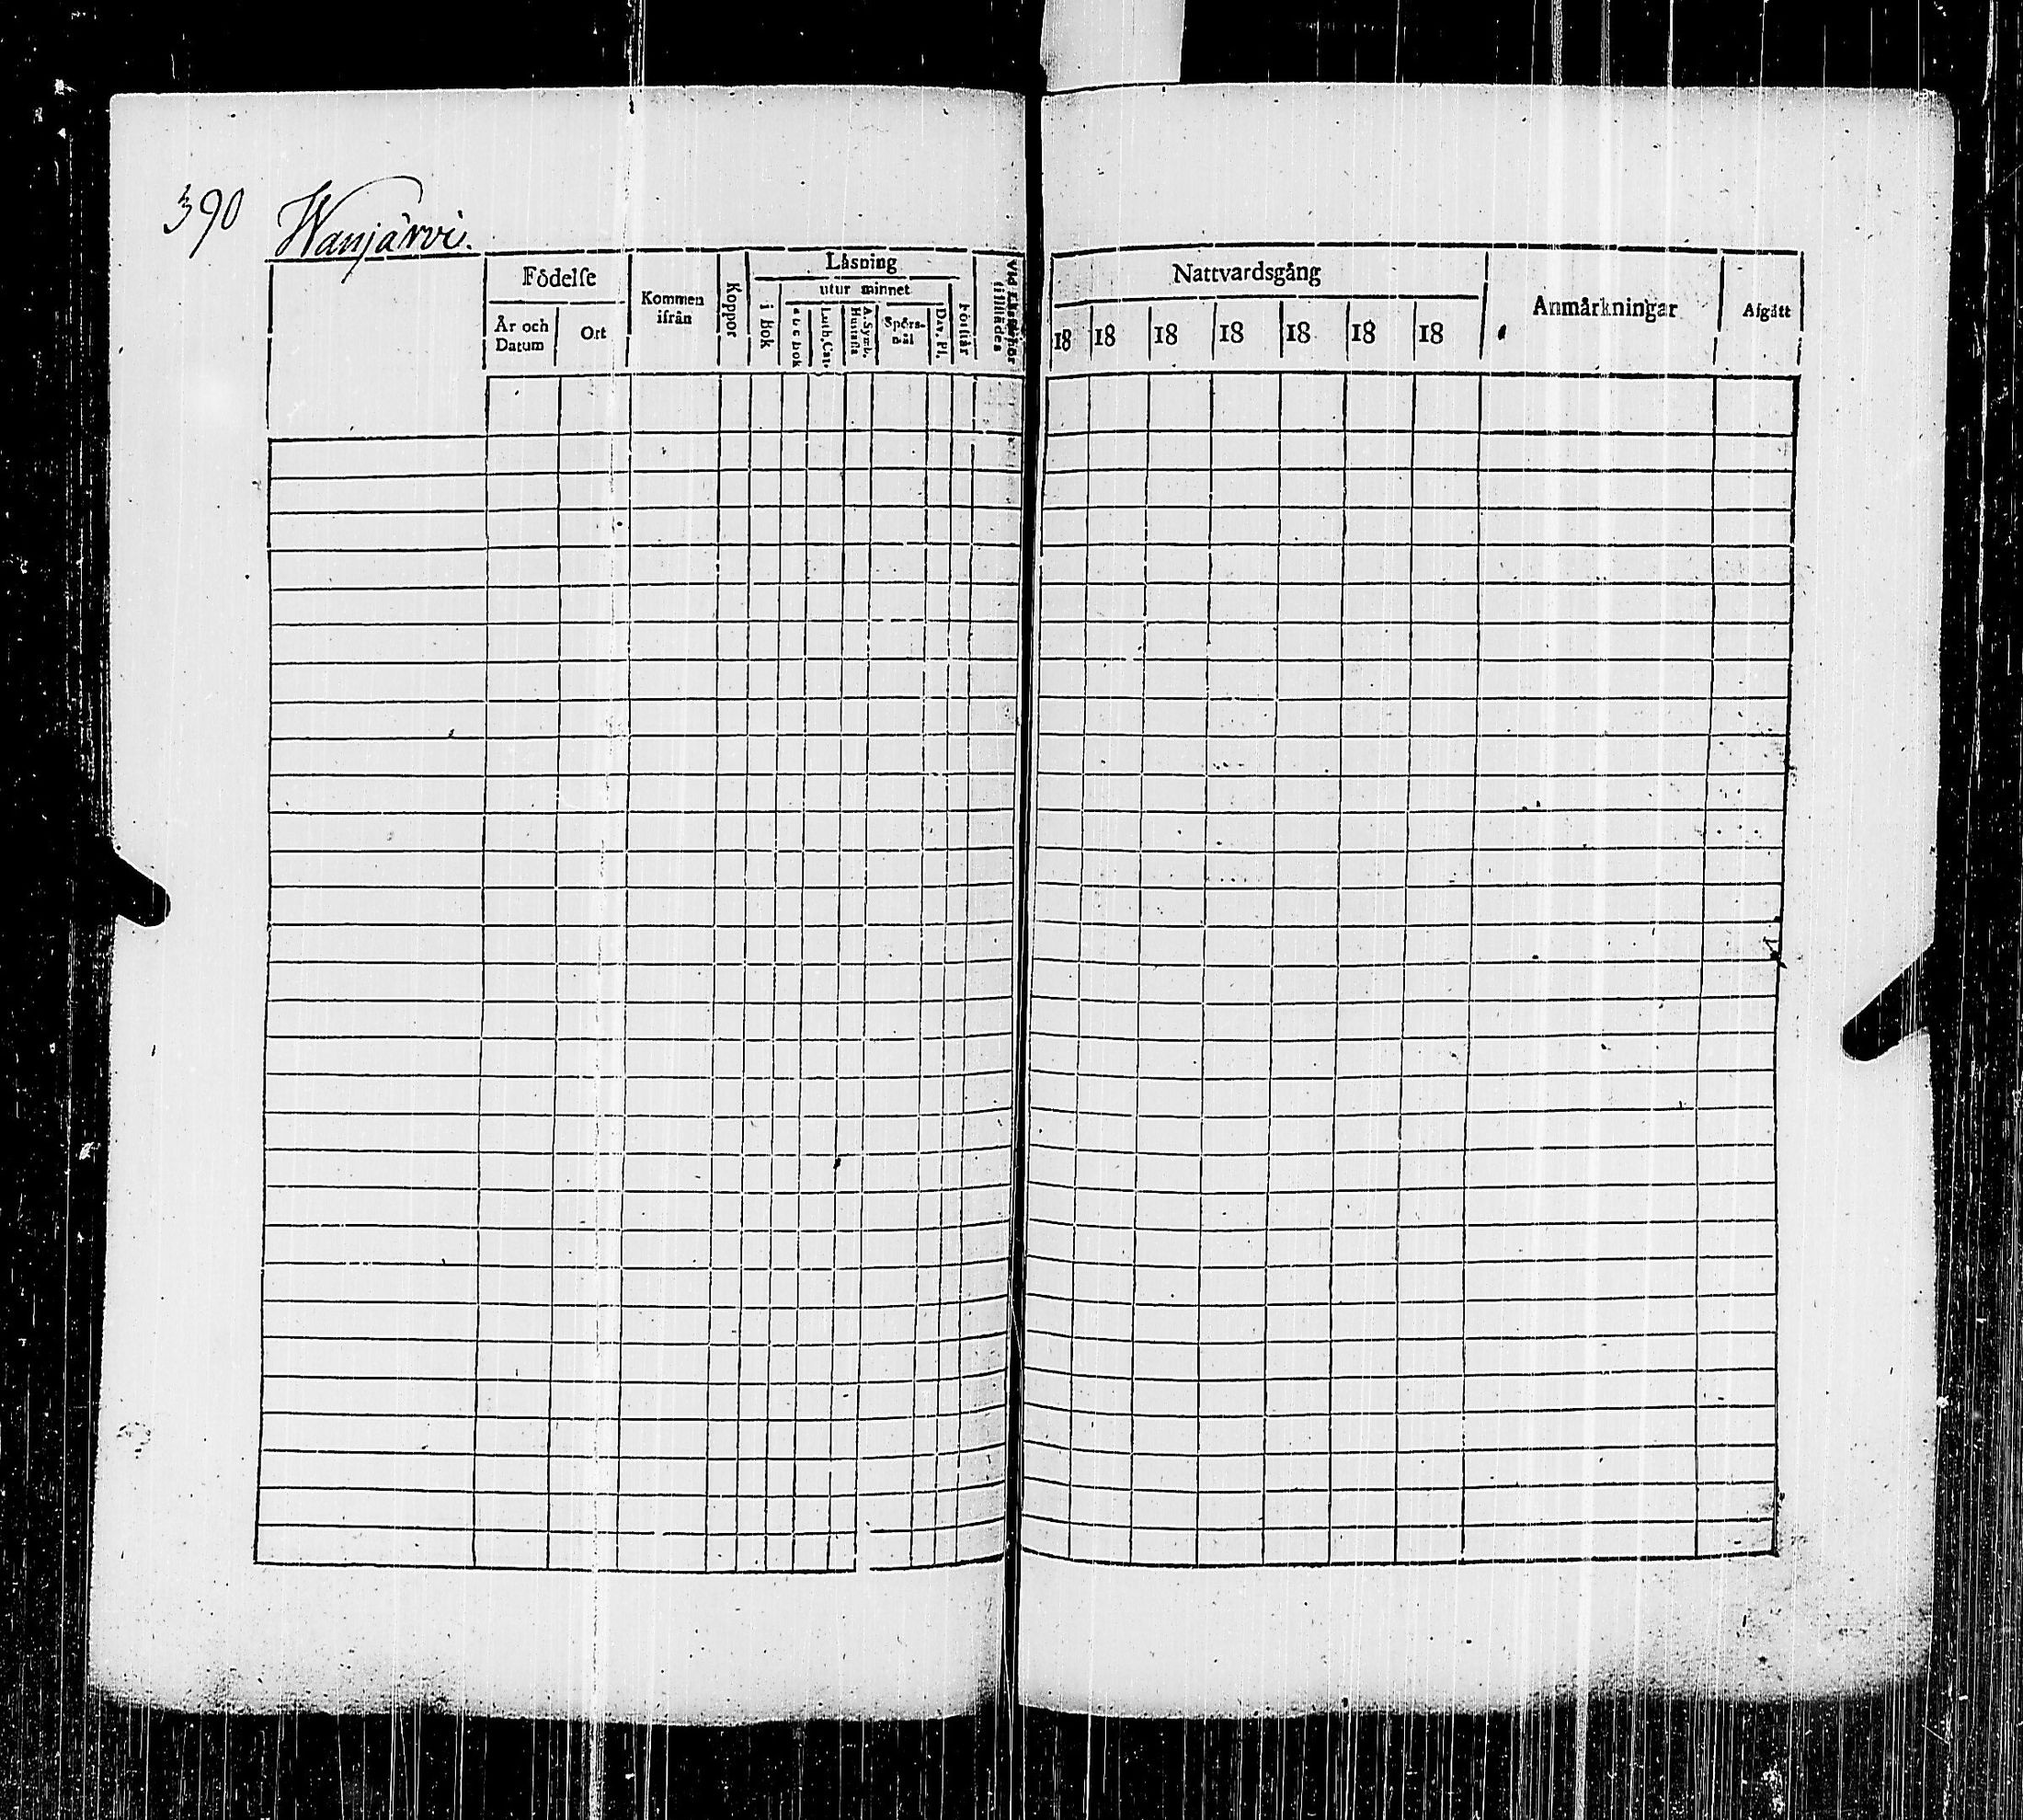 390 Wanjärvi.
Födelſe
År och Datum
Ort
Kommen ifrån
Koppor
Läsning
i bok
utur minnet
a b c bok
Luth. Cat.
A. Symb. Hustafla
Spörs-mål
Dav. Pl.
förstår
Nattvardsgång
18 18 18 18 18 18 18
Anmärkningar
Afgått